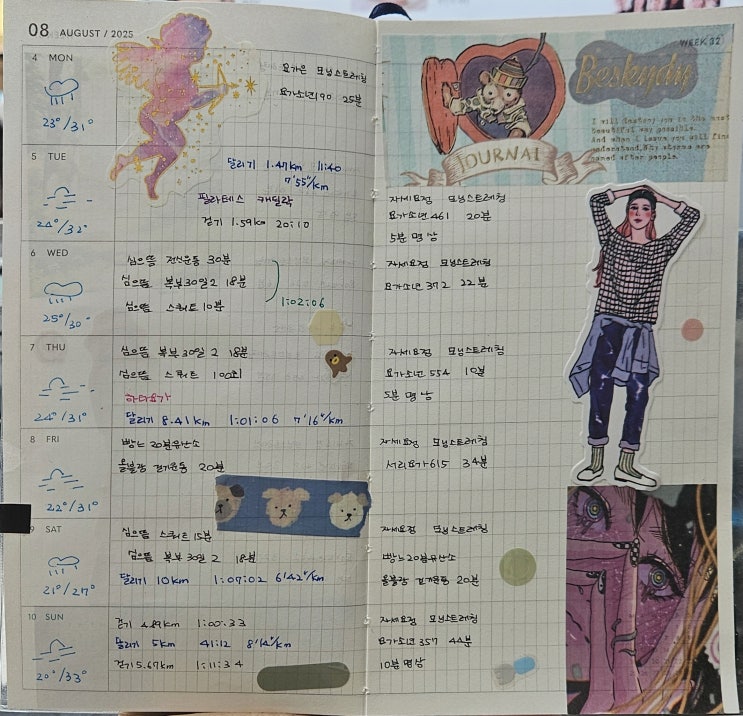 08 AUGUST / 2025
4 MON
요가은 모닝스트레칭
요가소년190 25분
23°/31°
5 TUE
달리기 1.47km 11:40
7'55"/km
필라테스 캐딜락
걷기 1.59km 20:10
24°/32°
6 WED
심으뜸 전신운동 30분
심으뜸 복부30일 2 18분
심으뜸 스쿼트 10분
1:02:06
25°/30°
7 THU
심으뜸 복부 30일 2 18분
심으뜸 스쿼트 100회
하타요가
달리기 8.41km 1:01:06 7'16"/km
24°/31°
8 FRI
빵느 20분유산소
올블랑 걷기운동 20분
22°/31°
9 SAT
심으뜸 스쿼트 15분
심으뜸 복부 30일 2 18분
달리기 10km 1:07:02 6'42"/km
21°/27°
10 SUN
걷기 4.89km 1:00:33
달리기 5km 41:12 8'14"/km
걷기 5.67km 1:11:34
20°/33°
WEEK 32
Beskydy
I will destroy you in the most
beautiful way possible.
And when I leave you will fin
understand, Why storms are
named after people.
JOURNAL
자세요정 모닝스트레칭
요가소년 461 20분
5분 명상
자세요정 모닝스트레칭
요가소년 372 22분
자세요정 모닝스트레칭
요가소년 554
5분 명상
자세요정 모닝스트레칭
서리요가615 34분
자세요정 모닝스트레칭
빵느20분유산소
올블랑 걷기운동 20분
자세요정 모닝스트레칭
요가소년 357 44분
10분 명상